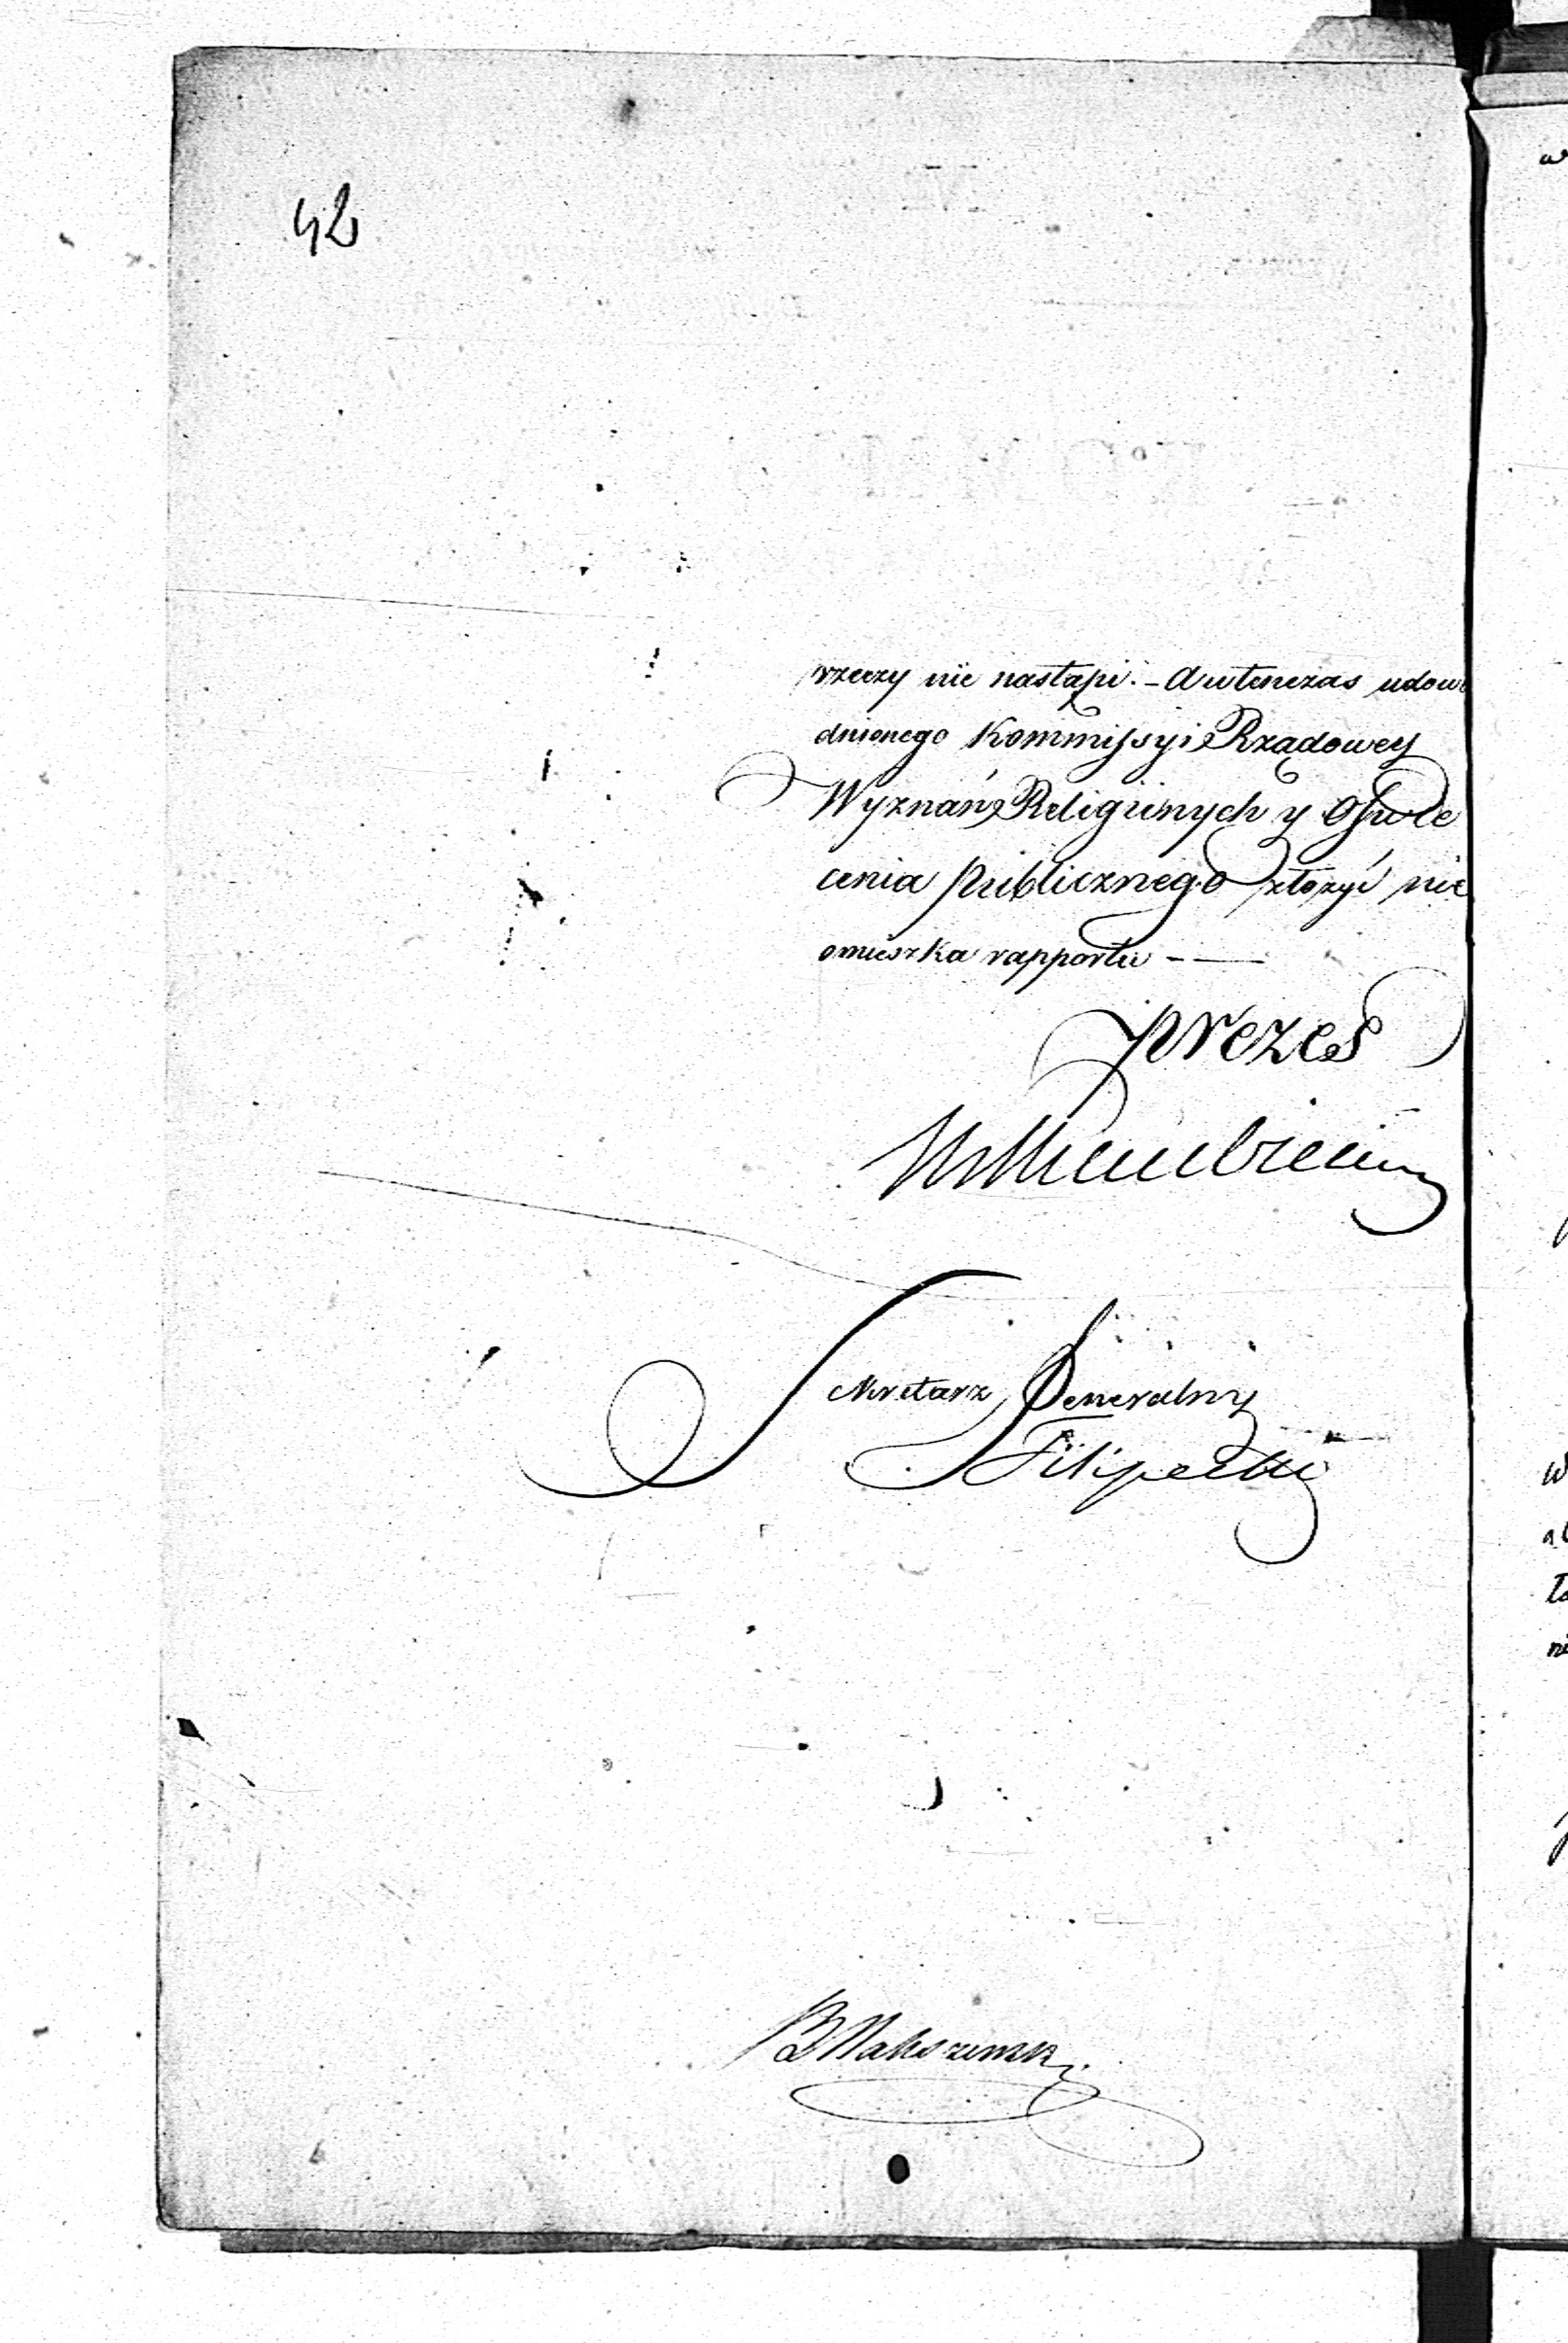 42
rzeczy nie nastąpi. – A wtenczas udowo
dnionego Kommissyi Rządowey
Wyznań Religiinych y Oświe
cenia Publicznego złożyć nie
omieszka rapportu – —
Prezes
Sekretarz Generalny
Filipecki